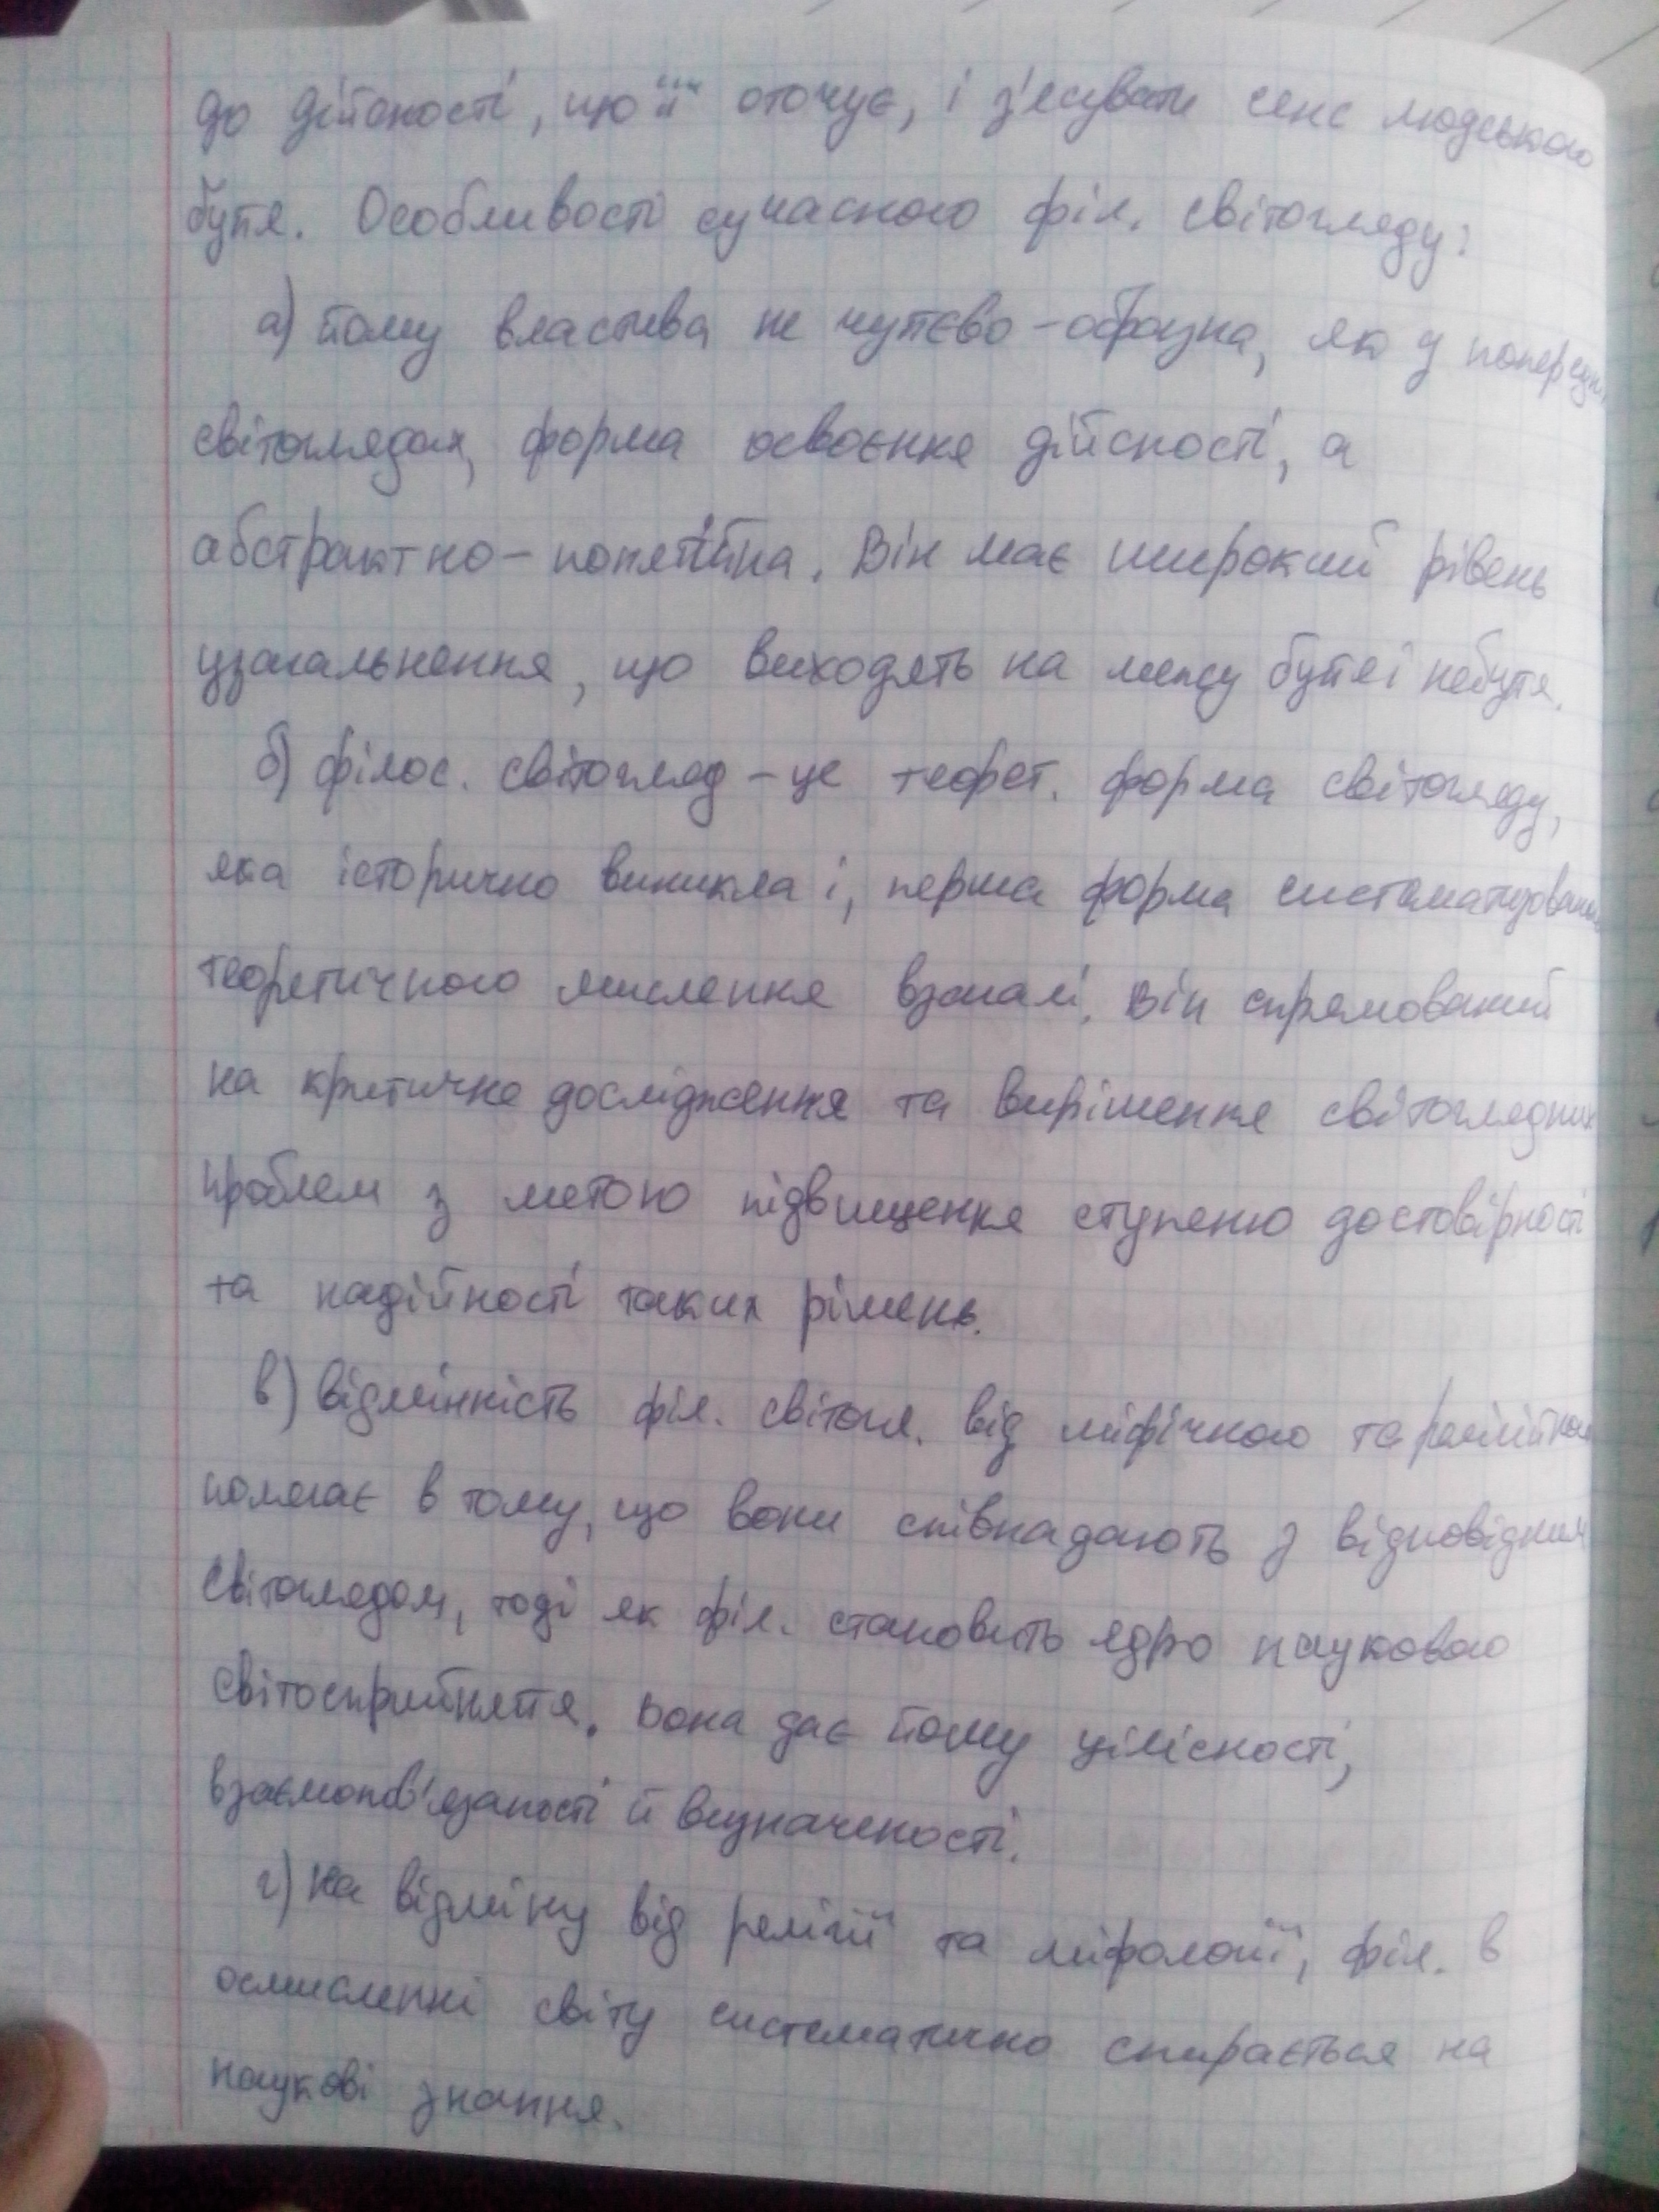 до дійсності, що її оточує, і з'ясувати сенс людського
буття. Особливості сучасного філ. світогляду:
а) йому властива не чуттєво-образна, як у
світоглядах, форма освоєння дійсності, а
абстрактно-понятійна. Він має широкий рівень
узагальнення, що виходять на межу буття і небуття.
б) філос. світогляд - це теорет. форма світогляду,
яка історично виникла і, перша форма
теоретичного мислення взагалі. Він спрямований
на критичне дослідження та вирішення світоглядних
проблем з метою підвищення ступеню достовірності
та надійності таких рішень.
в) відмінність філ. світогл. від міфічного та
полягає в тому, що вони співпадають з відповідним
світоглядом, тоді як філ. становить ядро наукового
світосприйняття. Вона дає йому цілісності,
взаємопов'язаності й визначеності.
г) На відміну від релігії та міфології, філ. в
осмисленні світу систематично спирається на
наукові знання.